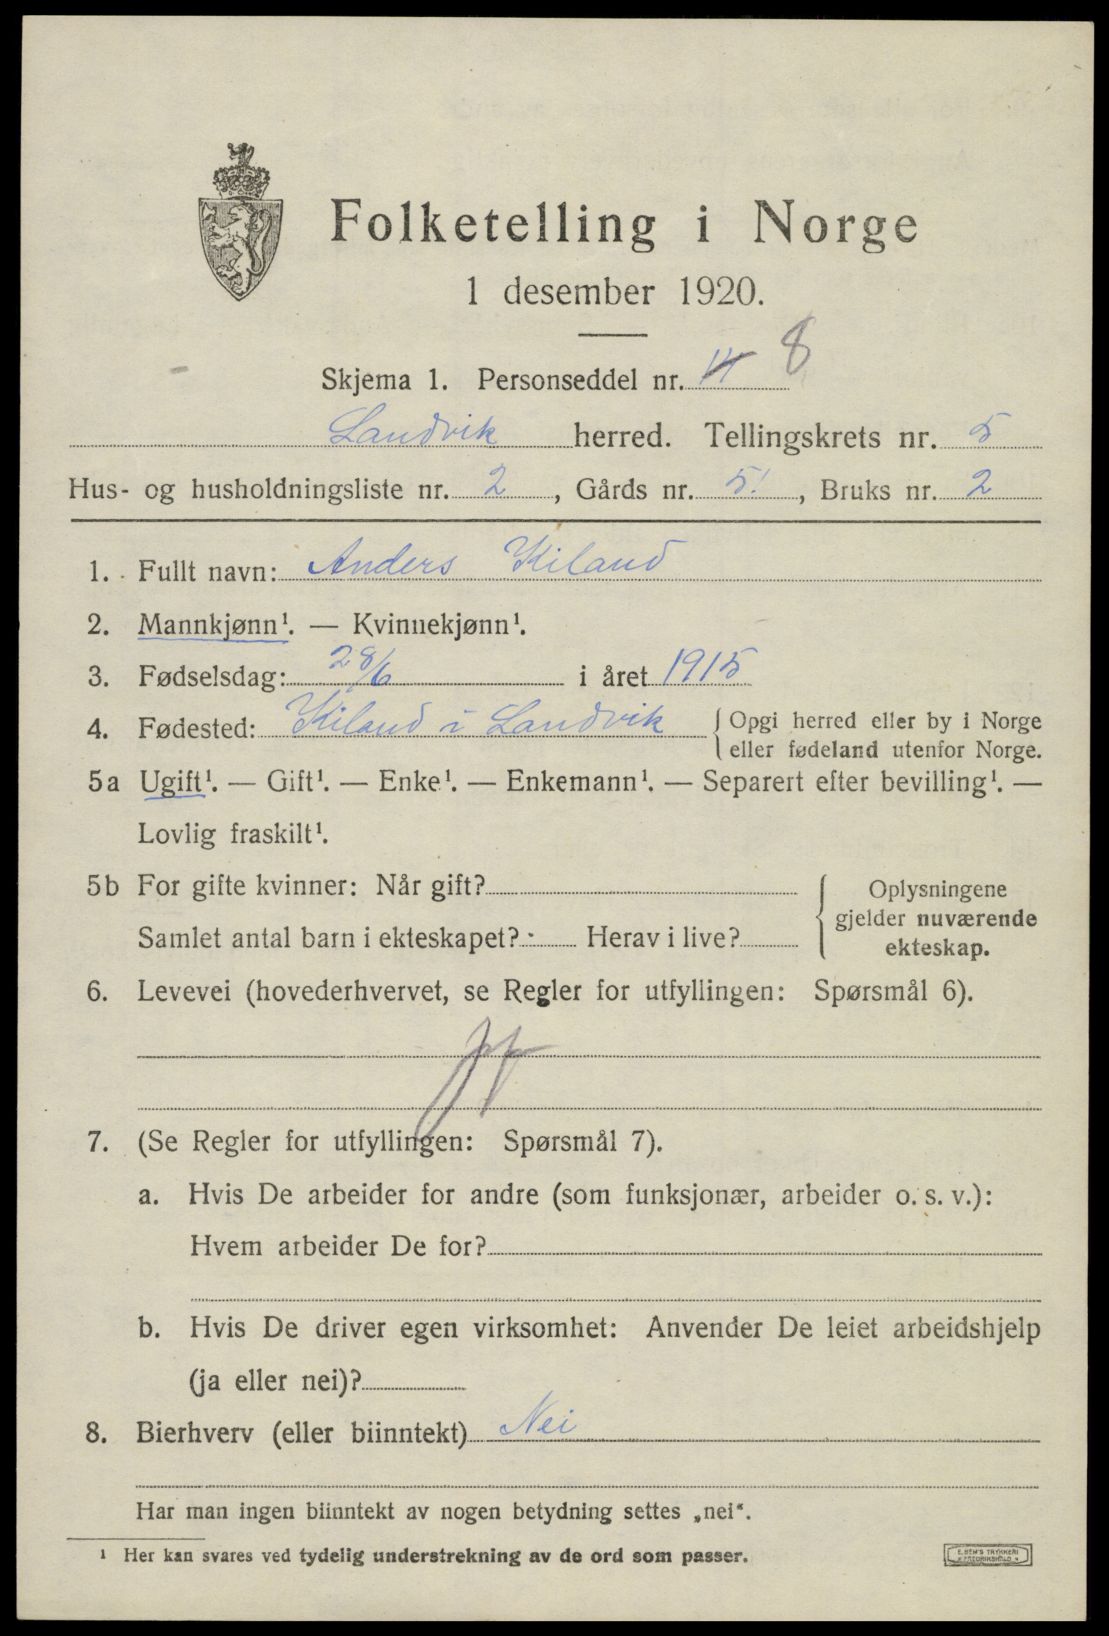 Folketelling i Norge
1 desember 1920.
Skjema 1. Personseddel nr. 14 8
Landvik herred. Tellingskrets nr. 5
Hus- og husholdningsliste nr. 2, Gårds nr. 5, Bruks nr. 2
1. Fullt navn: Anders Kiland
2. Mannkjønn¹. — Kvinnekjønn¹.
3. Fødselsdag: 28/6 i året 1915
4. Fødested: Kiland i Landvik { Opgi herred eller by i Norge
eller fødeland utenfor Norge.
5a Ugift¹. — Gift¹. — Enke¹. — Enkemann¹. — Separert efter bevilling¹. —
Lovlig fraskilt¹.
5b For gifte kvinner: Når gift?
Samlet antal barn i ekteskapet? Herav i live?
{ Oplysningene
gjelder nuværende
ekteskap.
6. Levevei (hovederhvervet, se Regler for utfyllingen: Spørsmål 6).
7. (Se Regler for utfyllingen: Spørsmål 7).
a. Hvis De arbeider for andre (som funksjonær, arbeider o. s. v.):
Hvem arbeider De for?
b. Hvis De driver egen virksomhet: Anvender De leiet arbeidshjelp
(ja eller nei)?
8. Bierhverv (eller biinntekt) Nei
Har man ingen biinntekt av nogen betydning settes „nei“.
¹ Her kan svares ved tydelig understrekning av de ord som passer.